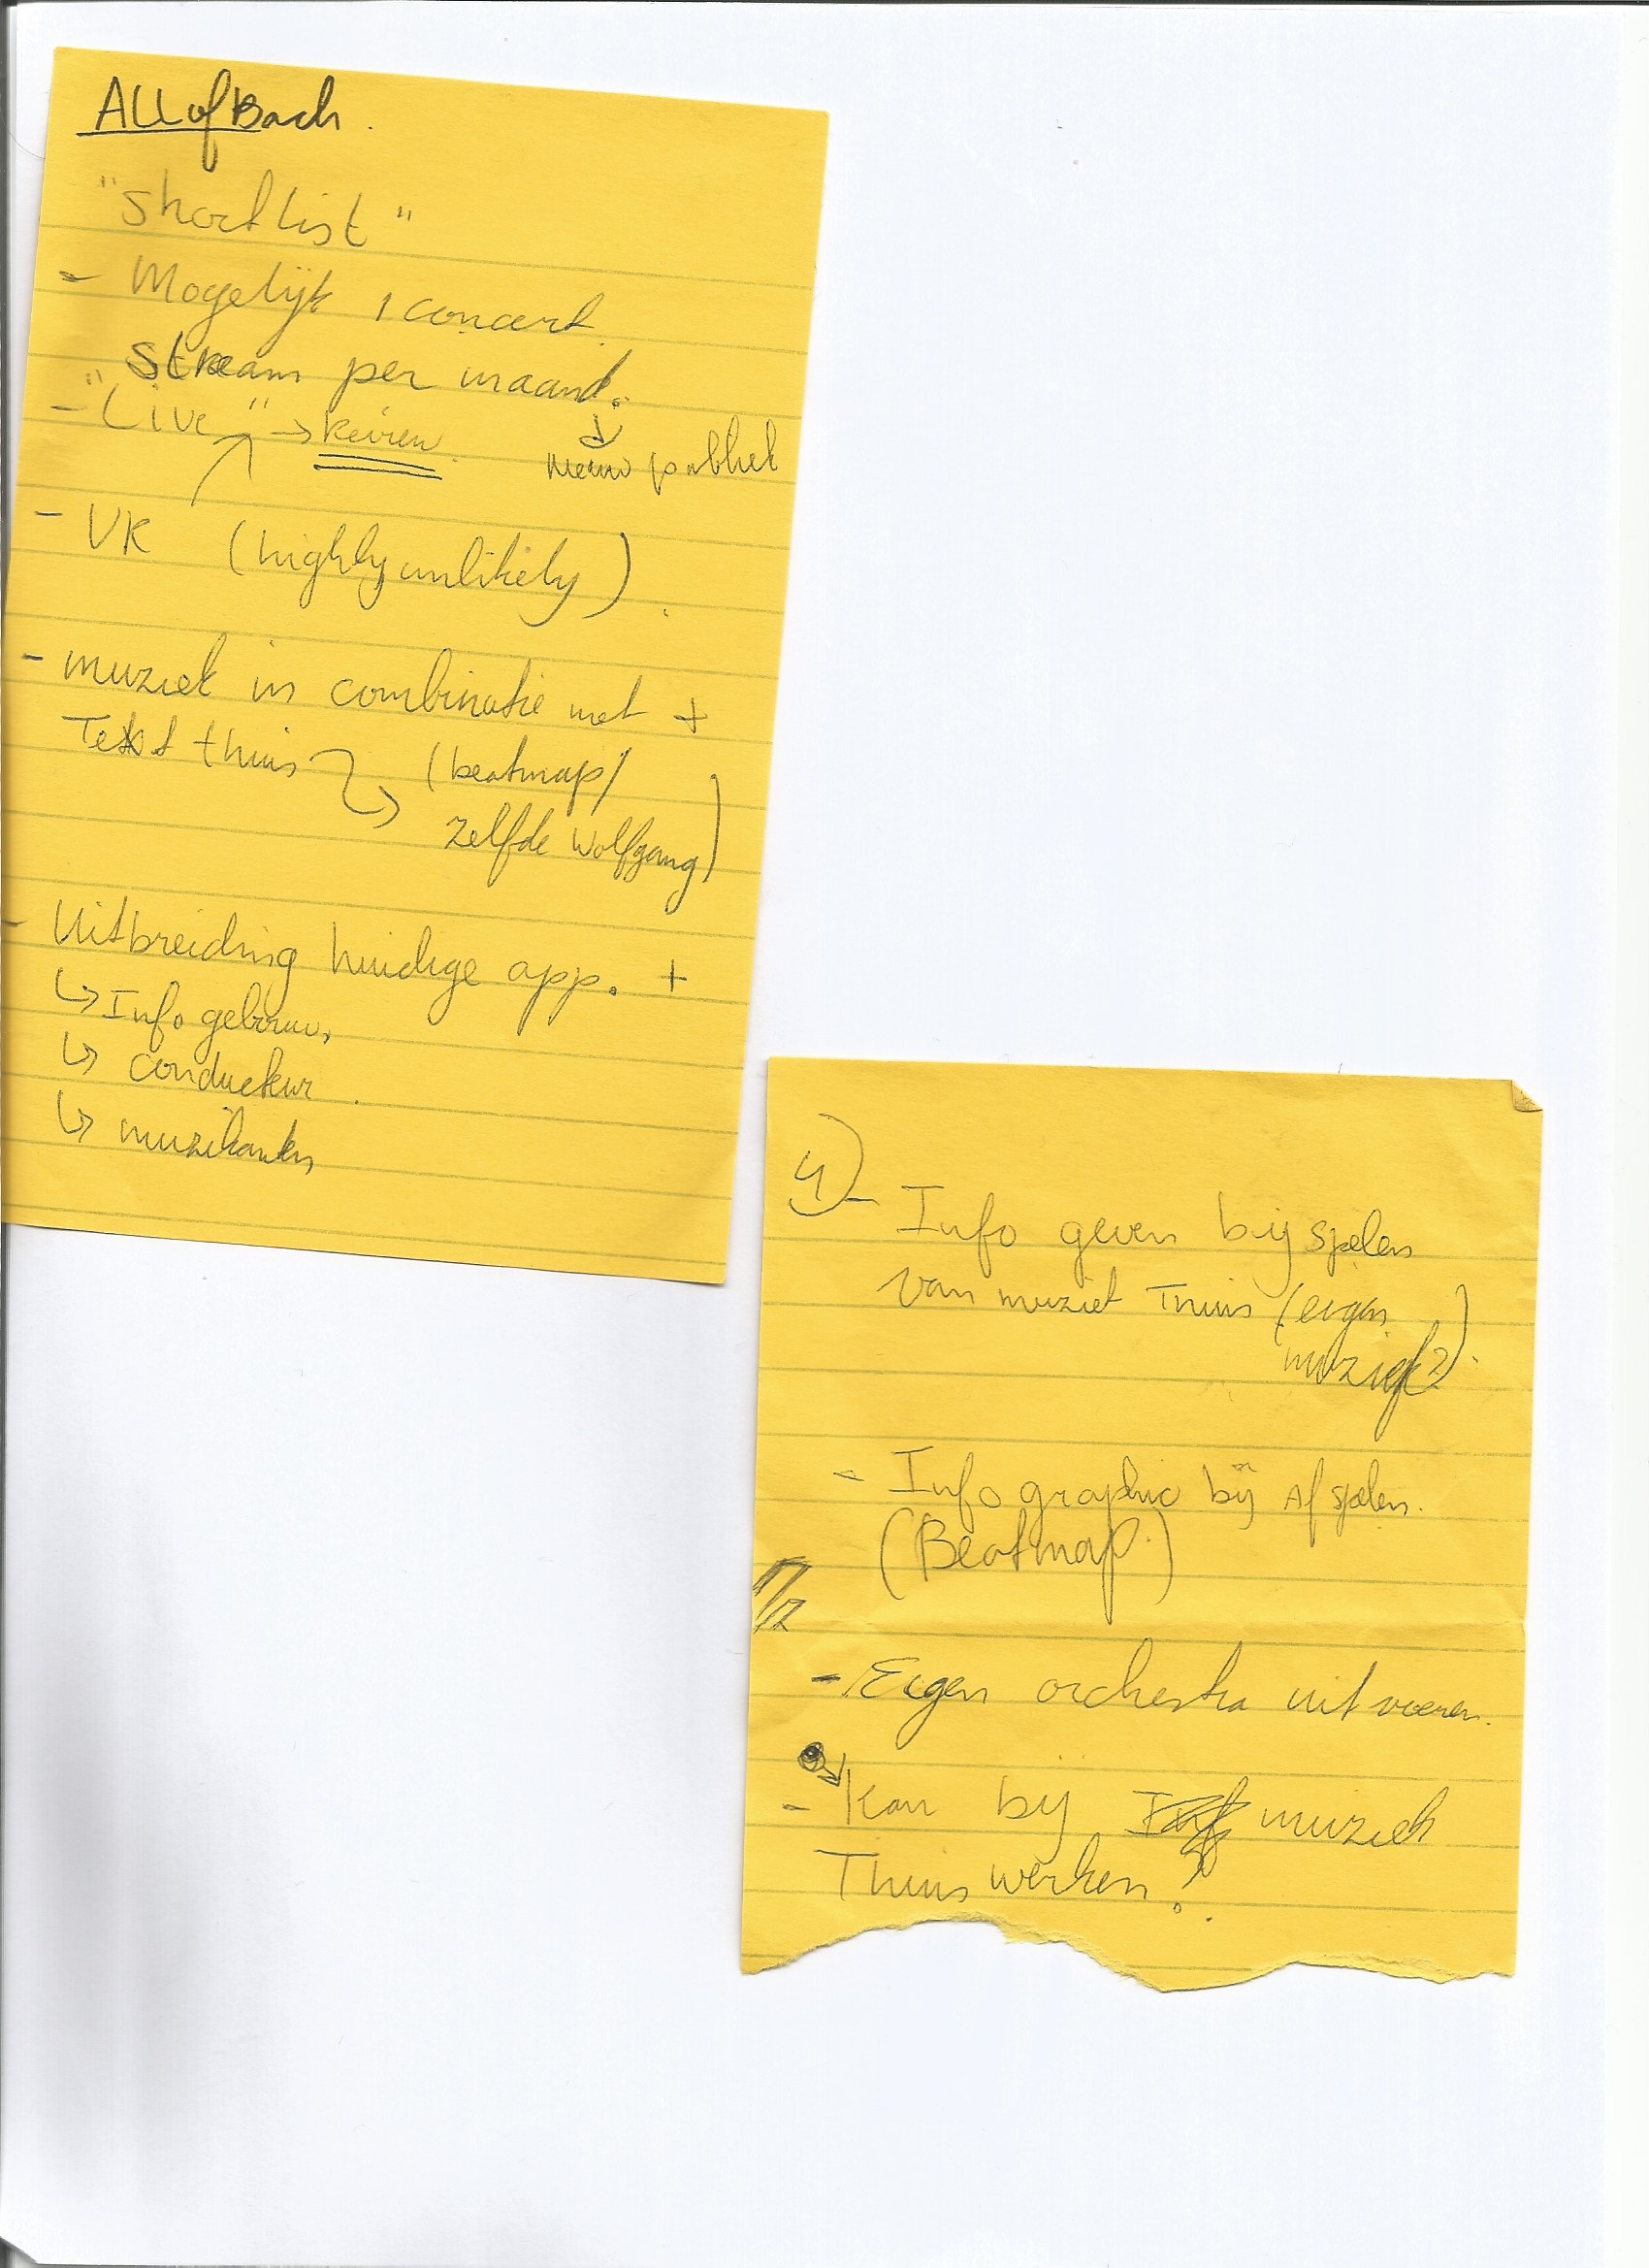 All of Bach.
"shortlist"
- Mogelijk 1 concert
stream per maand.
- "Live" →
publiek
- VR (highly unlikely).
- muziek in combinatie met +
Text thuis (beatmap/
zelfde Wolfgang)
- Uitbreiding huidige app. +
↳ Info gebouw,
↳ conducteur.
↳ muzikanten
4) - Info geven bij spelen
van muziek Thuis (eigen
muziek?).
- Info graphic bij Afspelen.
(Beatmap)
- Eigen orchestra uitvoeren.
- Kan bij muziek
Thuis werken?